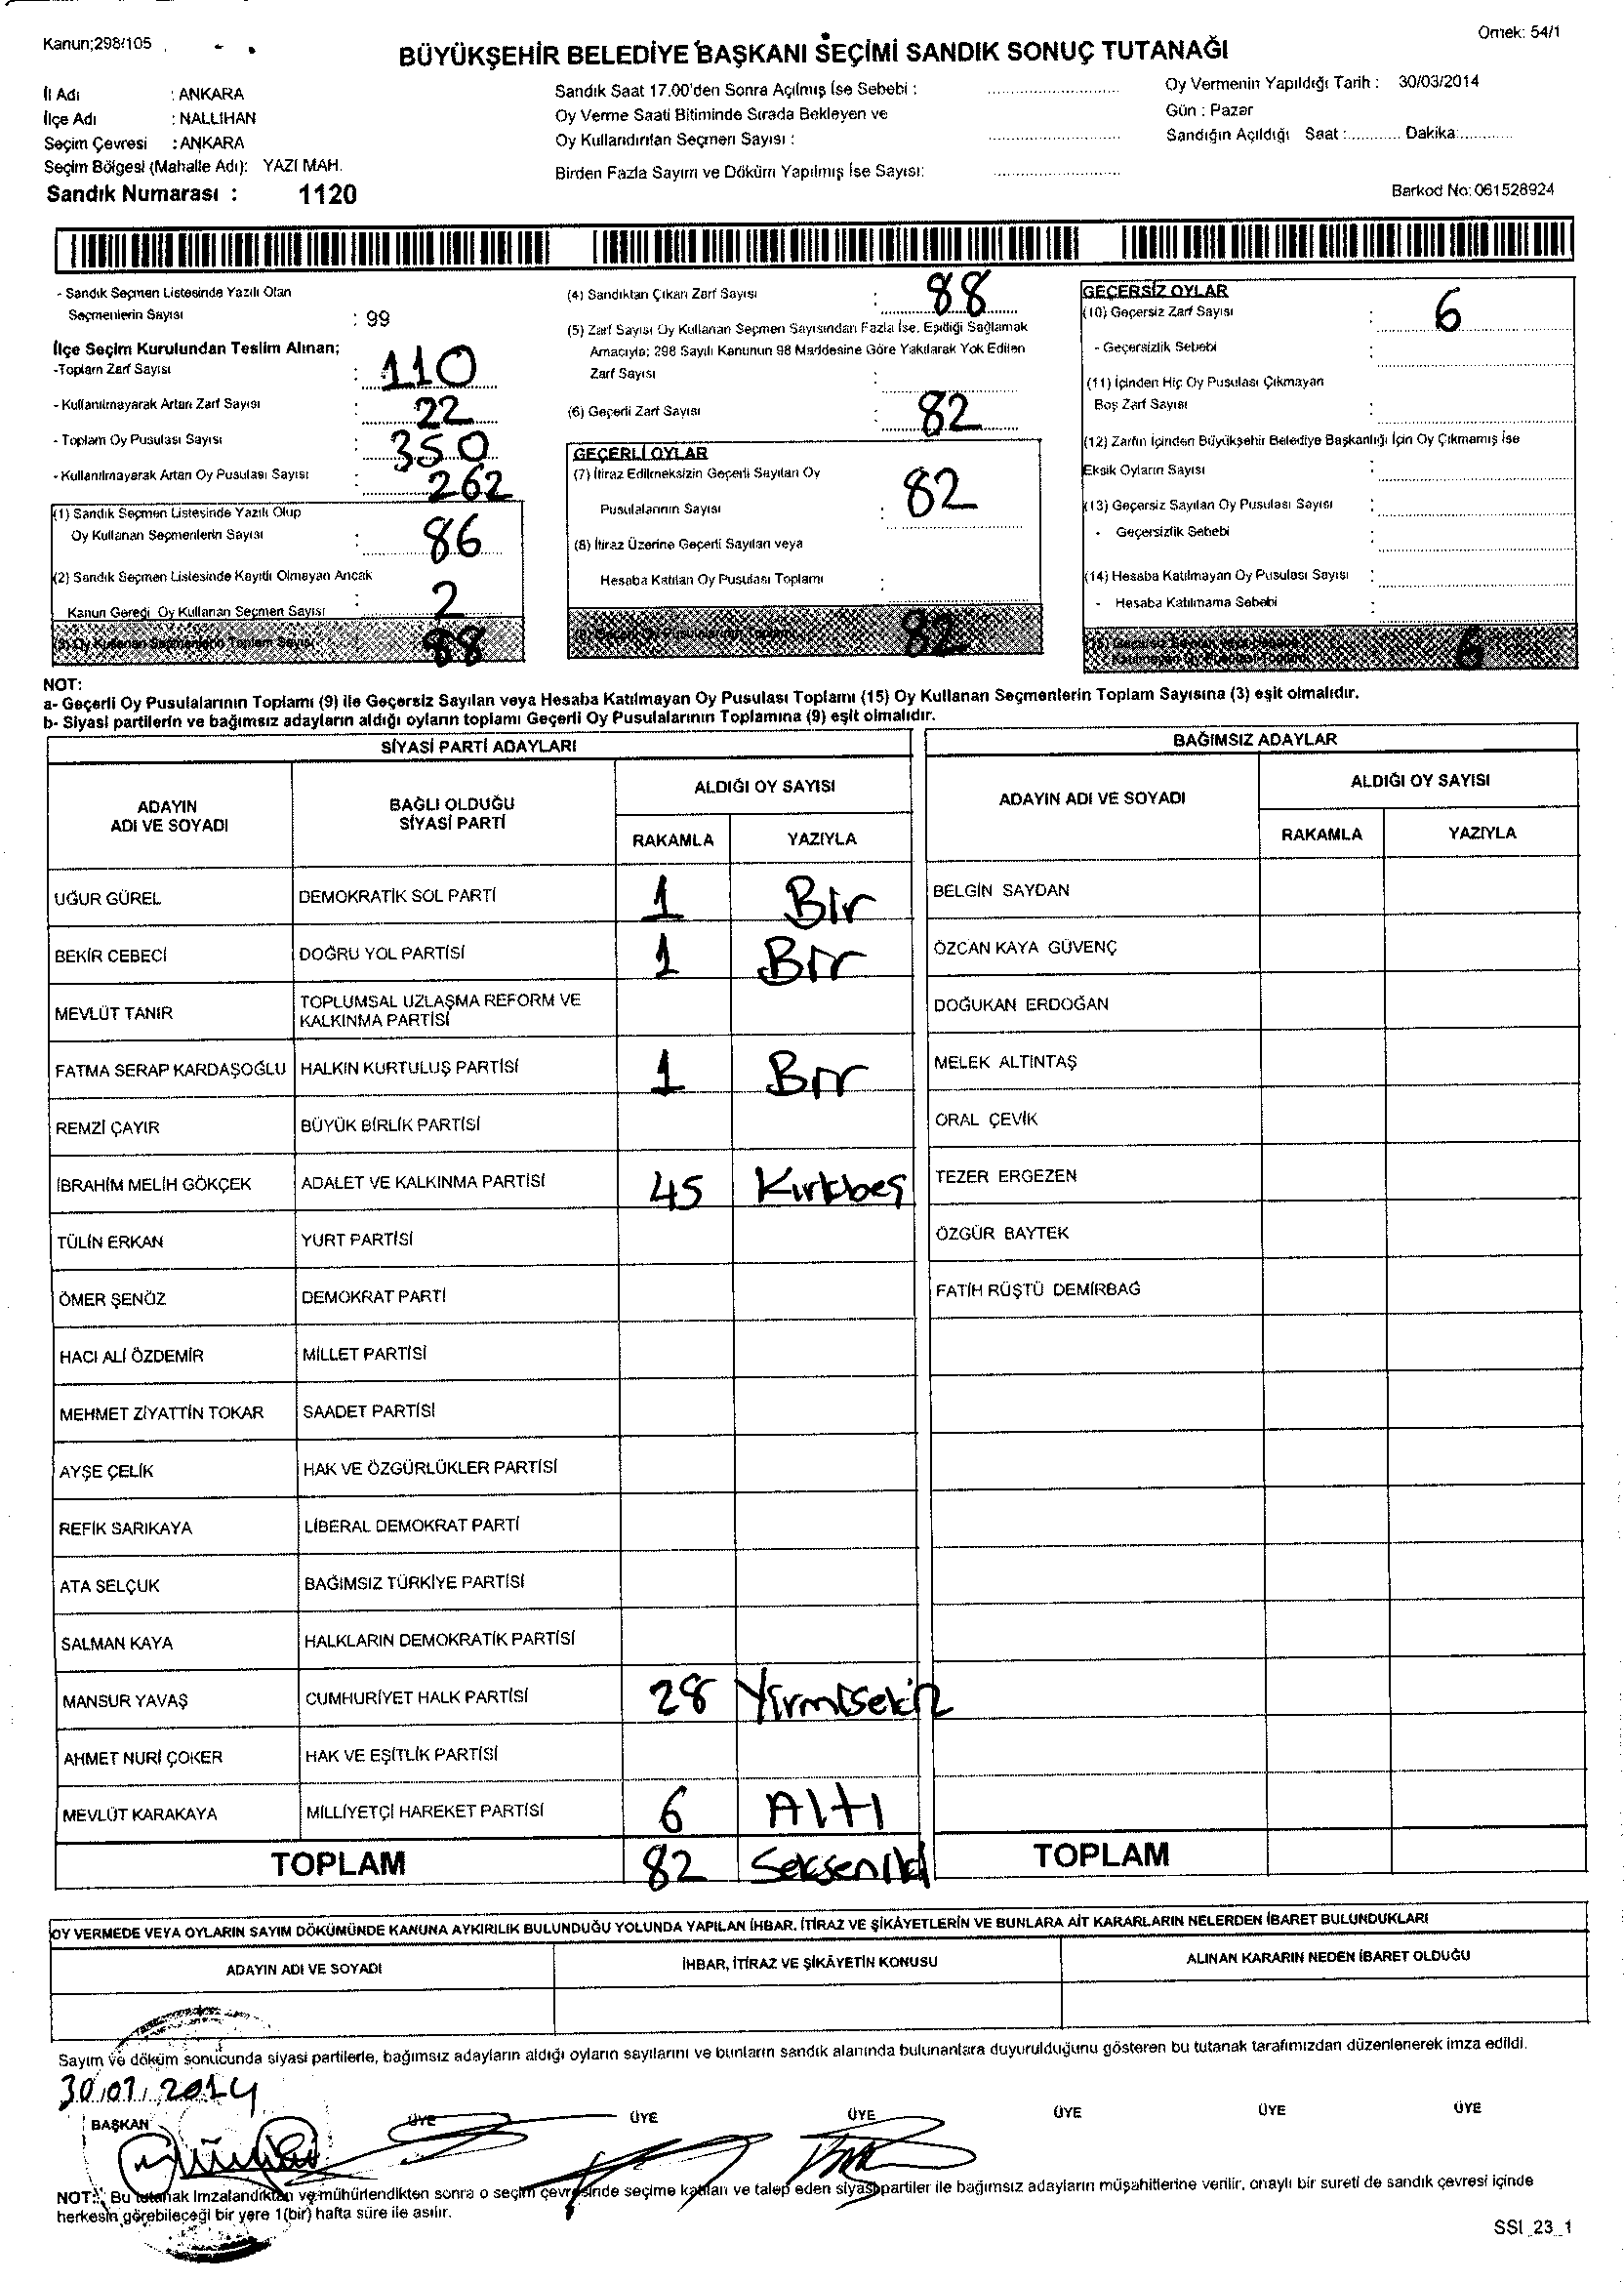 Kanun;298/105
Örnek: 54/1
BÜYÜKŞEHİR BELEDİYE BAŞKANI SEÇİMİ SANDIK SONUÇ TUTANAĞI
İl Adı : ANKARA
İlçe Adı : NALLIHAN
Seçim Çevresi : ANKARA
Seçim Bölgesi (Mahalle Adı): YAZI MAH.
Sandık Numarası : 1120
Sandık Saat 17.00'den Sonra Açılmış İse Sebebi :
Oy Verme Saati Bitiminde Sırada Bekleyen ve
Oy Kullandırılan Seçmen Sayısı :
Birden Fazla Sayım ve Döküm Yapılmış İse Sayısı:
Oy Vermenin Yapıldığı Tarih : 30/03/2014
Gün : Pazar
Sandığın Açıldığı Saat :........... Dakika:............
Barkod No: 061528924
- Sandık Seçmen Listesinde Yazılı Olan
Seçmenlerin Sayısı : 99
İlçe Seçim Kurulundan Teslim Alınan;
-Toplam Zarf Sayısı : 110
- Kullanılmayarak Artan Zarf Sayısı : 22
- Toplam Oy Pusulası Sayısı : 350
- Kullanılmayarak Artan Oy Pusulası Sayısı : 262
(1) Sandık Seçmen Listesinde Yazılı Olup
Oy Kullanan Seçmenlerin Sayısı : 86
(2) Sandık Seçmen Listesinde Kayıtlı Olmayan Ancak
Kanun Gereği Oy Kullanan Seçmen Sayısı : 2
(3) Oy Kullanan Seçmenlerin Toplam Sayısı : 88
(4) Sandıktan Çıkan Zarf Sayısı : 88
(5) Zarf Sayısı Oy Kullanan Seçmen Sayısından Fazla İse, Eşitliği Sağlamak
Amacıyla; 298 Sayılı Kanunun 98 Maddesine Göre Yakılarak Yok Edilen
Zarf Sayısı :
(6) Geçerli Zarf Sayısı : 82
GEÇERLİ OYLAR
(7) İtiraz Edilmeksizin Geçerli Sayılan Oy
Pusulalarının Sayısı : 82
(8) İtiraz Üzerine Geçerli Sayılan veya
Hesaba Katılan Oy Pusulası Toplamı :
(9) Geçerli Oy Pusulalarının Toplamı 82
GEÇERSİZ OYLAR
(10) Geçersiz Zarf Sayısı : 6
- Geçersizlik Sebebi :
(11) İçinden Hiç Oy Pusulası Çıkmayan
Boş Zarf Sayısı :
(12) Zarfın İçinden Büyükşehir Belediye Başkanlığı İçin Oy Çıkmamış İse
Eksik Oyların Sayısı :
(13) Geçersiz Sayılan Oy Pusulası Sayısı :
- Geçersizlik Sebebi :
(14) Hesaba Katılmayan Oy Pusulası Sayısı :
- Hesaba Katılmama Sebebi :
(15) Geçersiz Sayılan veya Hesaba
Katılmayan Oy Pusulası Toplamı 6
NOT:
a- Geçerli Oy Pusulalarının Toplamı (9) ile Geçersiz Sayılan veya Hesaba Katılmayan Oy Pusulası Toplamı (15) Oy Kullanan Seçmenlerin Toplam Sayısına (3) eşit olmalıdır.
b- Siyasi partilerin ve bağımsız adayların aldığı oyların toplamı Geçerli Oy Pusulalarının Toplamına (9) eşit olmalıdır.
SİYASİ PARTİ ADAYLARI
ADAYIN ADI VE SOYADI
BAĞLI OLDUĞU SİYASİ PARTİ
ALDIĞI OY SAYISI
RAKAMLA YAZIYLA
UĞUR GÜREL DEMOKRATİK SOL PARTİ 1 Bir
BEKİR CEBECİ DOĞRU YOL PARTİSİ 1 Bir
MEVLÜT TANIR TOPLUMSAL UZLAŞMA REFORM VE
KALKINMA PARTİSİ
FATMA SERAP KARDAŞOĞLU HALKIN KURTULUŞ PARTİSİ 1 Bir
REMZİ ÇAYIR BÜYÜK BİRLİK PARTİSİ
İBRAHİM MELİH GÖKÇEK ADALET VE KALKINMA PARTİSİ 45 Kırkbeş
TÜLİN ERKAN YURT PARTİSİ
ÖMER ŞENÖZ DEMOKRAT PARTİ
HACI ALİ ÖZDEMİR MİLLET PARTİSİ
MEHMET ZİYATTİN TOKAR SAADET PARTİSİ
AYŞE ÇELİK HAK VE ÖZGÜRLÜKLER PARTİSİ
REFİK SARIKAYA LİBERAL DEMOKRAT PARTİ
ATA SELÇUK BAĞIMSIZ TÜRKİYE PARTİSİ
SALMAN KAYA HALKLARIN DEMOKRATİK PARTİSİ
MANSUR YAVAŞ CUMHURİYET HALK PARTİSİ 28 Yirmisekiz
AHMET NURİ ÇOKER HAK VE EŞİTLİK PARTİSİ
MEVLÜT KARAKAYA MİLLİYETÇİ HAREKET PARTİSİ 6 Altı
TOPLAM 82 Sekseniki
BAĞIMSIZ ADAYLAR
ADAYIN ADI VE SOYADI
ALDIĞI OY SAYISI
RAKAMLA YAZIYLA
BELGİN SAYDAN
ÖZCAN KAYA GÜVENÇ
DOĞUKAN ERDOĞAN
MELEK ALTINTAŞ
ORAL ÇEVİK
TEZER ERGEZEN
ÖZGÜR BAYTEK
FATİH RÜŞTÜ DEMİRBAĞ
TOPLAM
OY VERMEDE VEYA OYLARIN SAYIM DÖKÜMÜNDE KANUNA AYKIRILIK BULUNDUĞU YOLUNDA YAPILAN İHBAR, İTİRAZ VE ŞİKÂYETLERİN VE BUNLARA AİT KARARLARIN NELERDEN İBARET BULUNDUKLARI
ADAYIN ADI VE SOYADI İHBAR, İTİRAZ VE ŞİKÂYETİN KONUSU ALINAN KARARIN NEDEN İBARET OLDUĞU
Sayım ve döküm sonucunda siyasi partilerle, bağımsız adayların aldığı oyların sayılarını ve bunların sandık alanında bulunanlara duyurulduğunu gösteren bu tutanak tarafımızdan düzenlenerek imza edildi.
30.03.2014
BAŞKAN ÜYE ÜYE ÜYE ÜYE ÜYE ÜYE
NOT: Bu tutanak İmzalandıktan ve mühürlendikten sonra o seçim çevresinde seçime katılan ve talep eden siyasi partiler ile bağımsız adayların müşahitlerine verilir, onaylı bir sureti de sandık çevresi içinde
herkesin görebileceği bir yere 1(bir) hafta süre ile asılır.
SSI_23_1